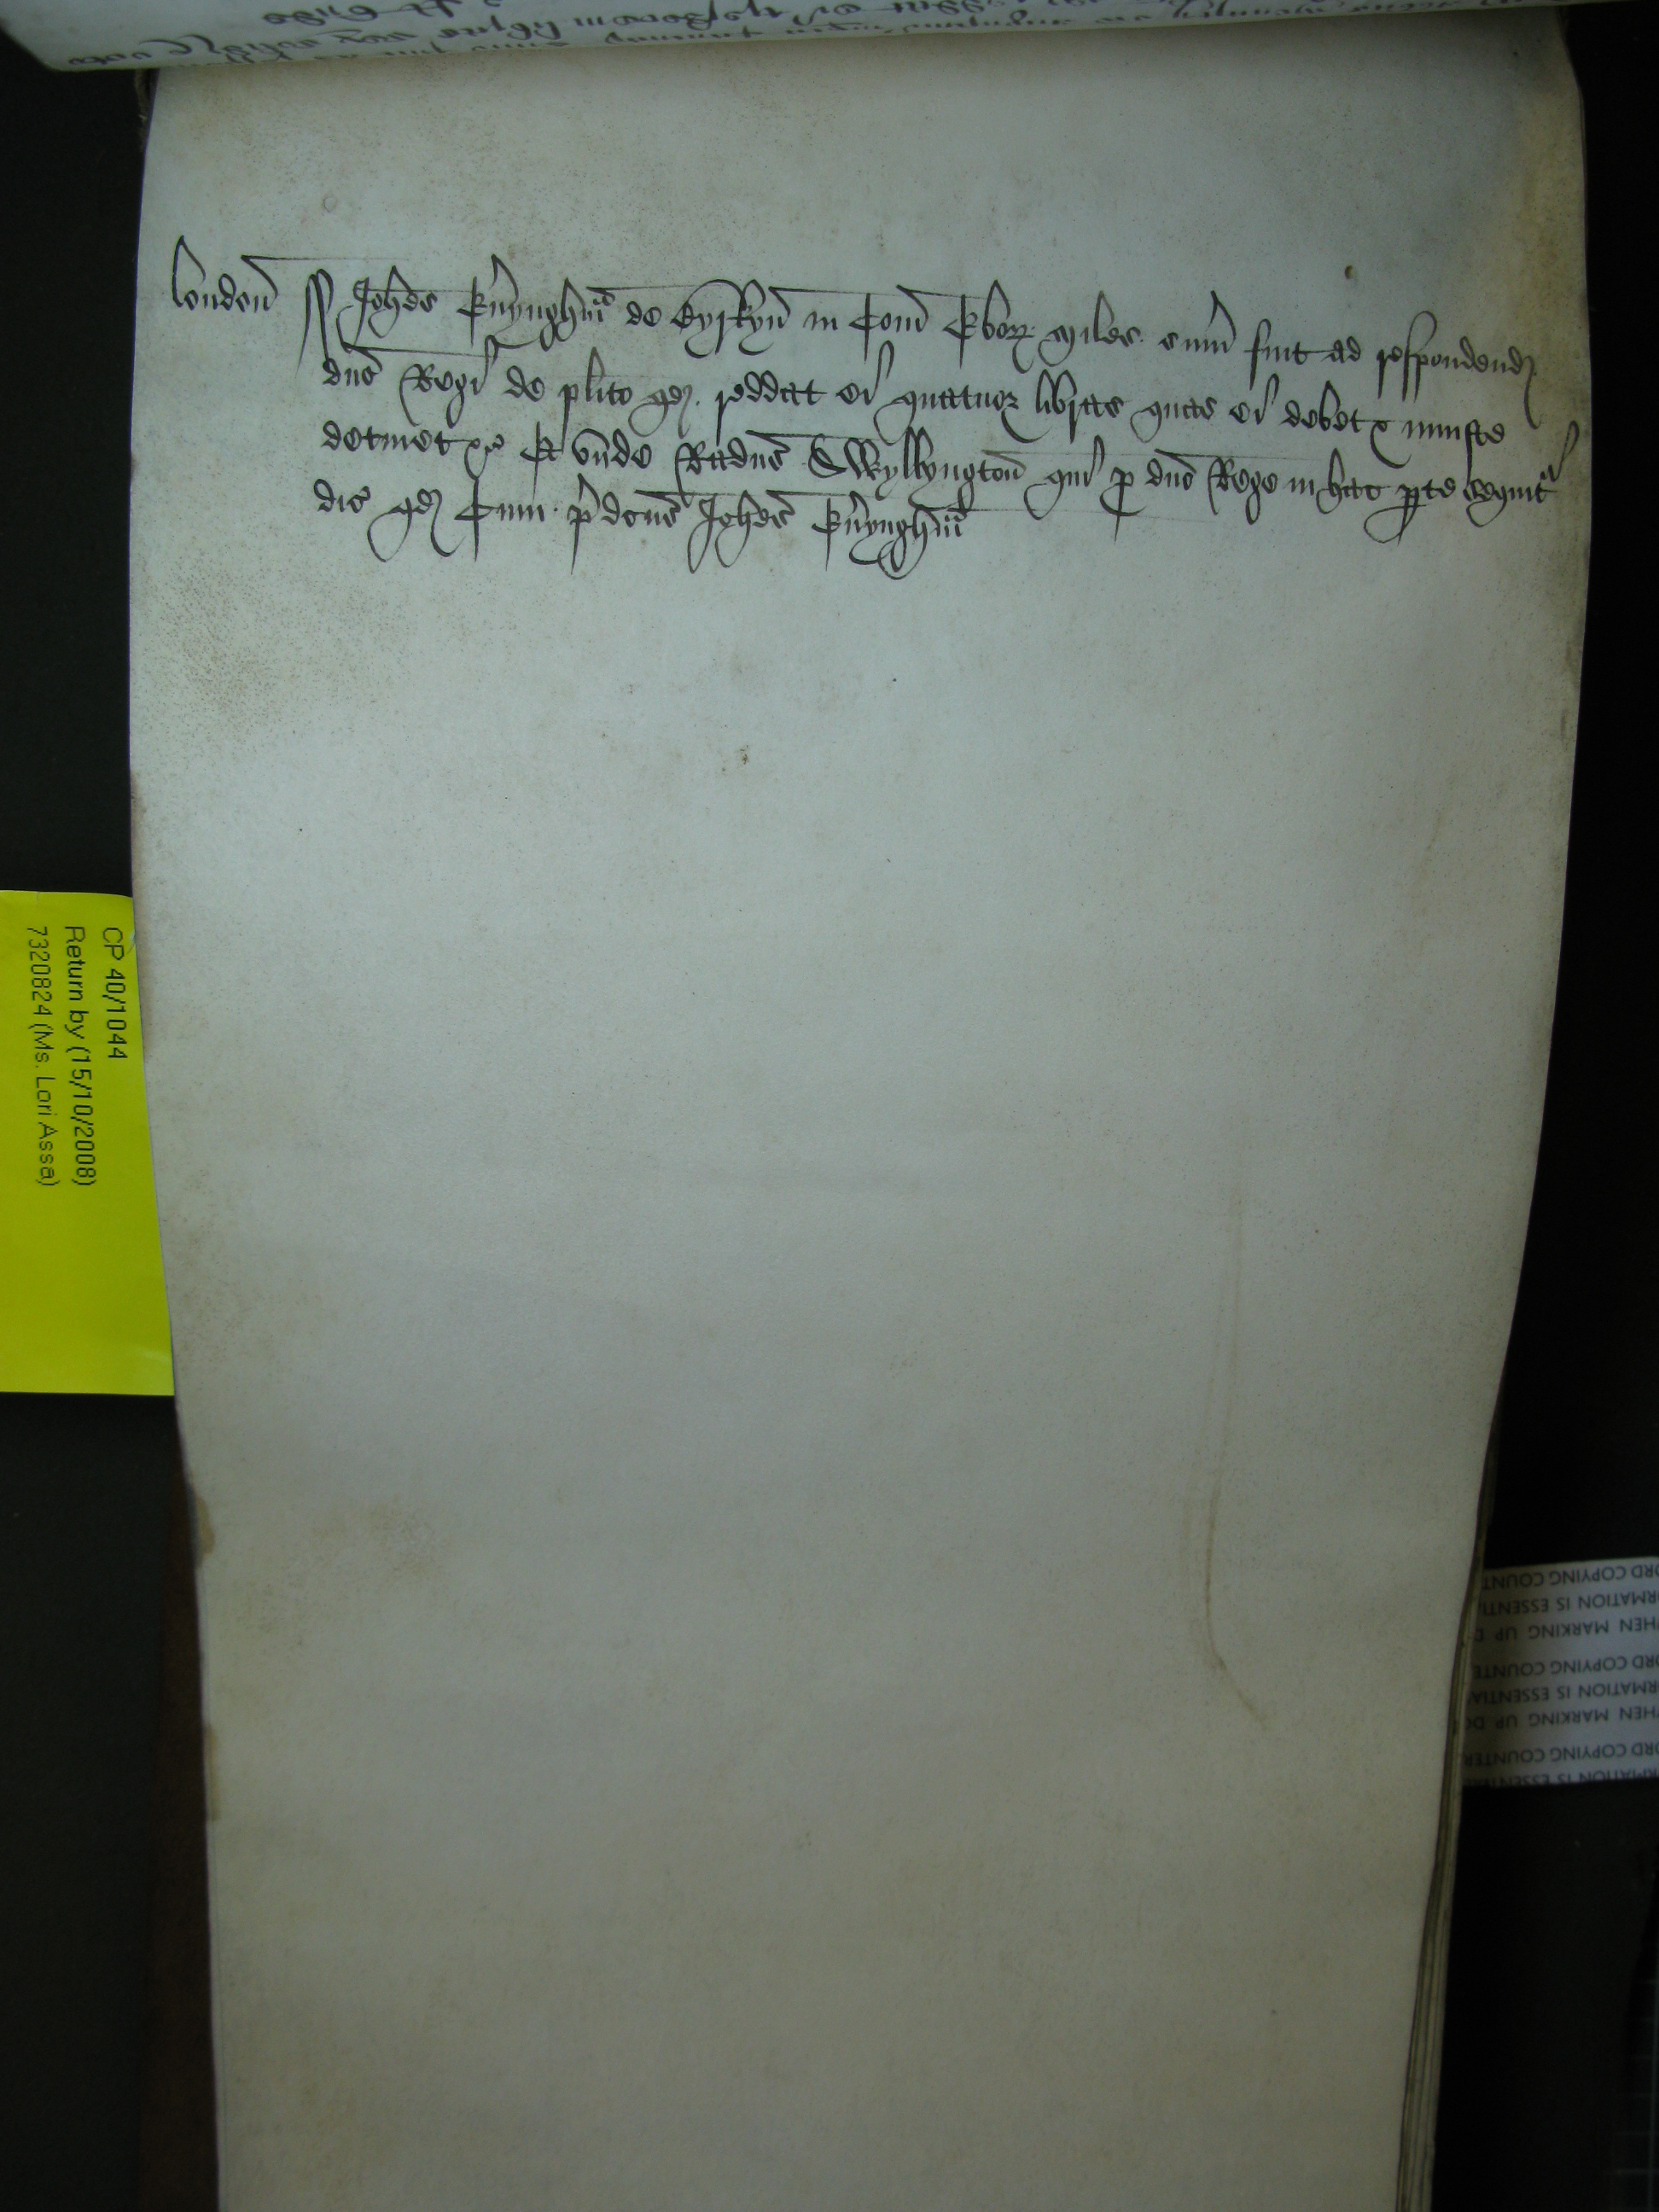 london ss Johēs Kn̄yngh̄m de Eyrkyn̄ in Com̄ Ebor̨ miles sum̄ fuit ad respondend̨
dn̄o Regi de pl̄ito qd̨ reddat ei quatuor libras quas ei debet & iniuste
detinet &c̄ Et vn̄de Radus̄ Swyllyngton̄ qui p̱ dn̄o Rege in hac p̱te sequit̄
dic̄ qd̨ Cum p̄dcūs Johēs Kn̄yngh̄m
CP 40/1044
Return by (15/10/2008)
7320824 (Ms. Lori Assa)
ORD COPYING COUNT
RMATION IS ESSENTIA
HEN MARKING UP D
ORD COPYING COUNTE
RMATION IS ESSENTIA
HEN MARKING UP DO
RD COPYING COUNTER
RMATION IS ESSENTIAL